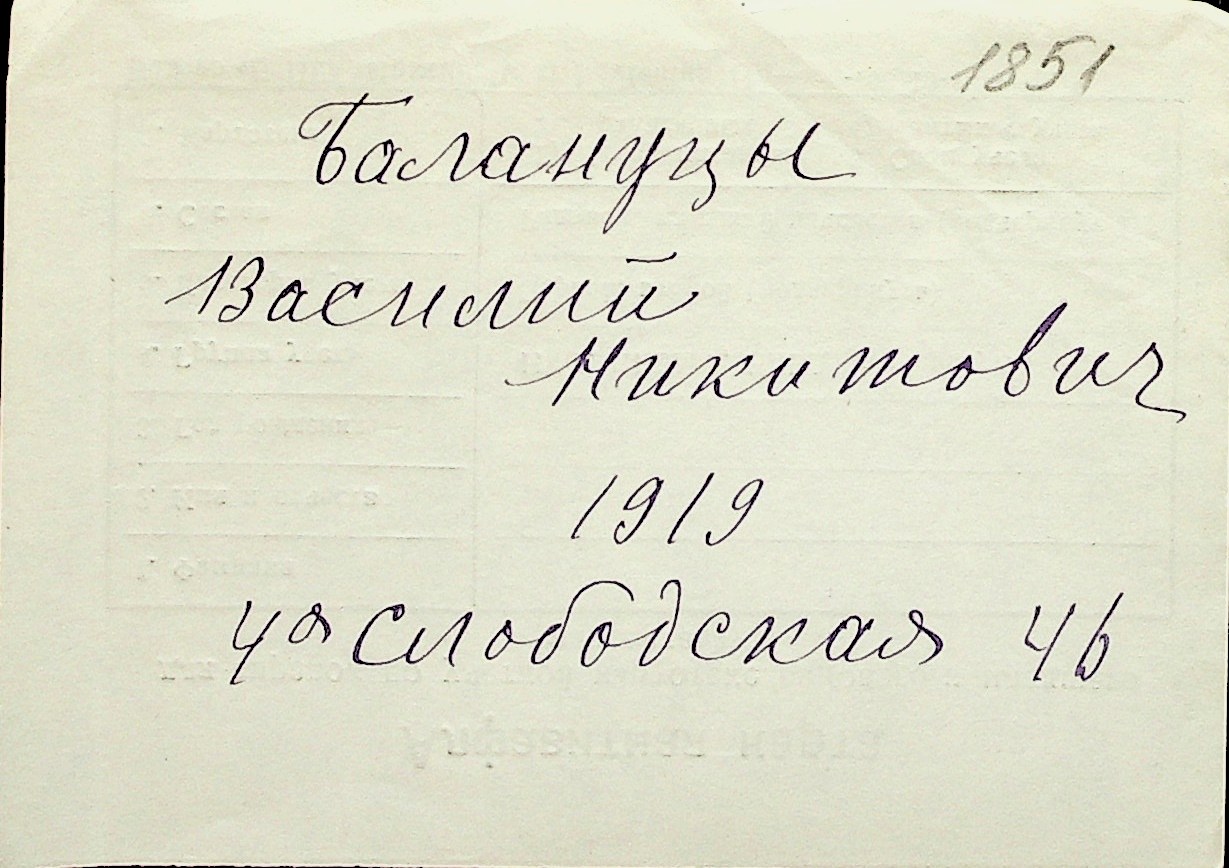 1851
Балануцы
Василий
Никитович
1919
4я Слободская 4б